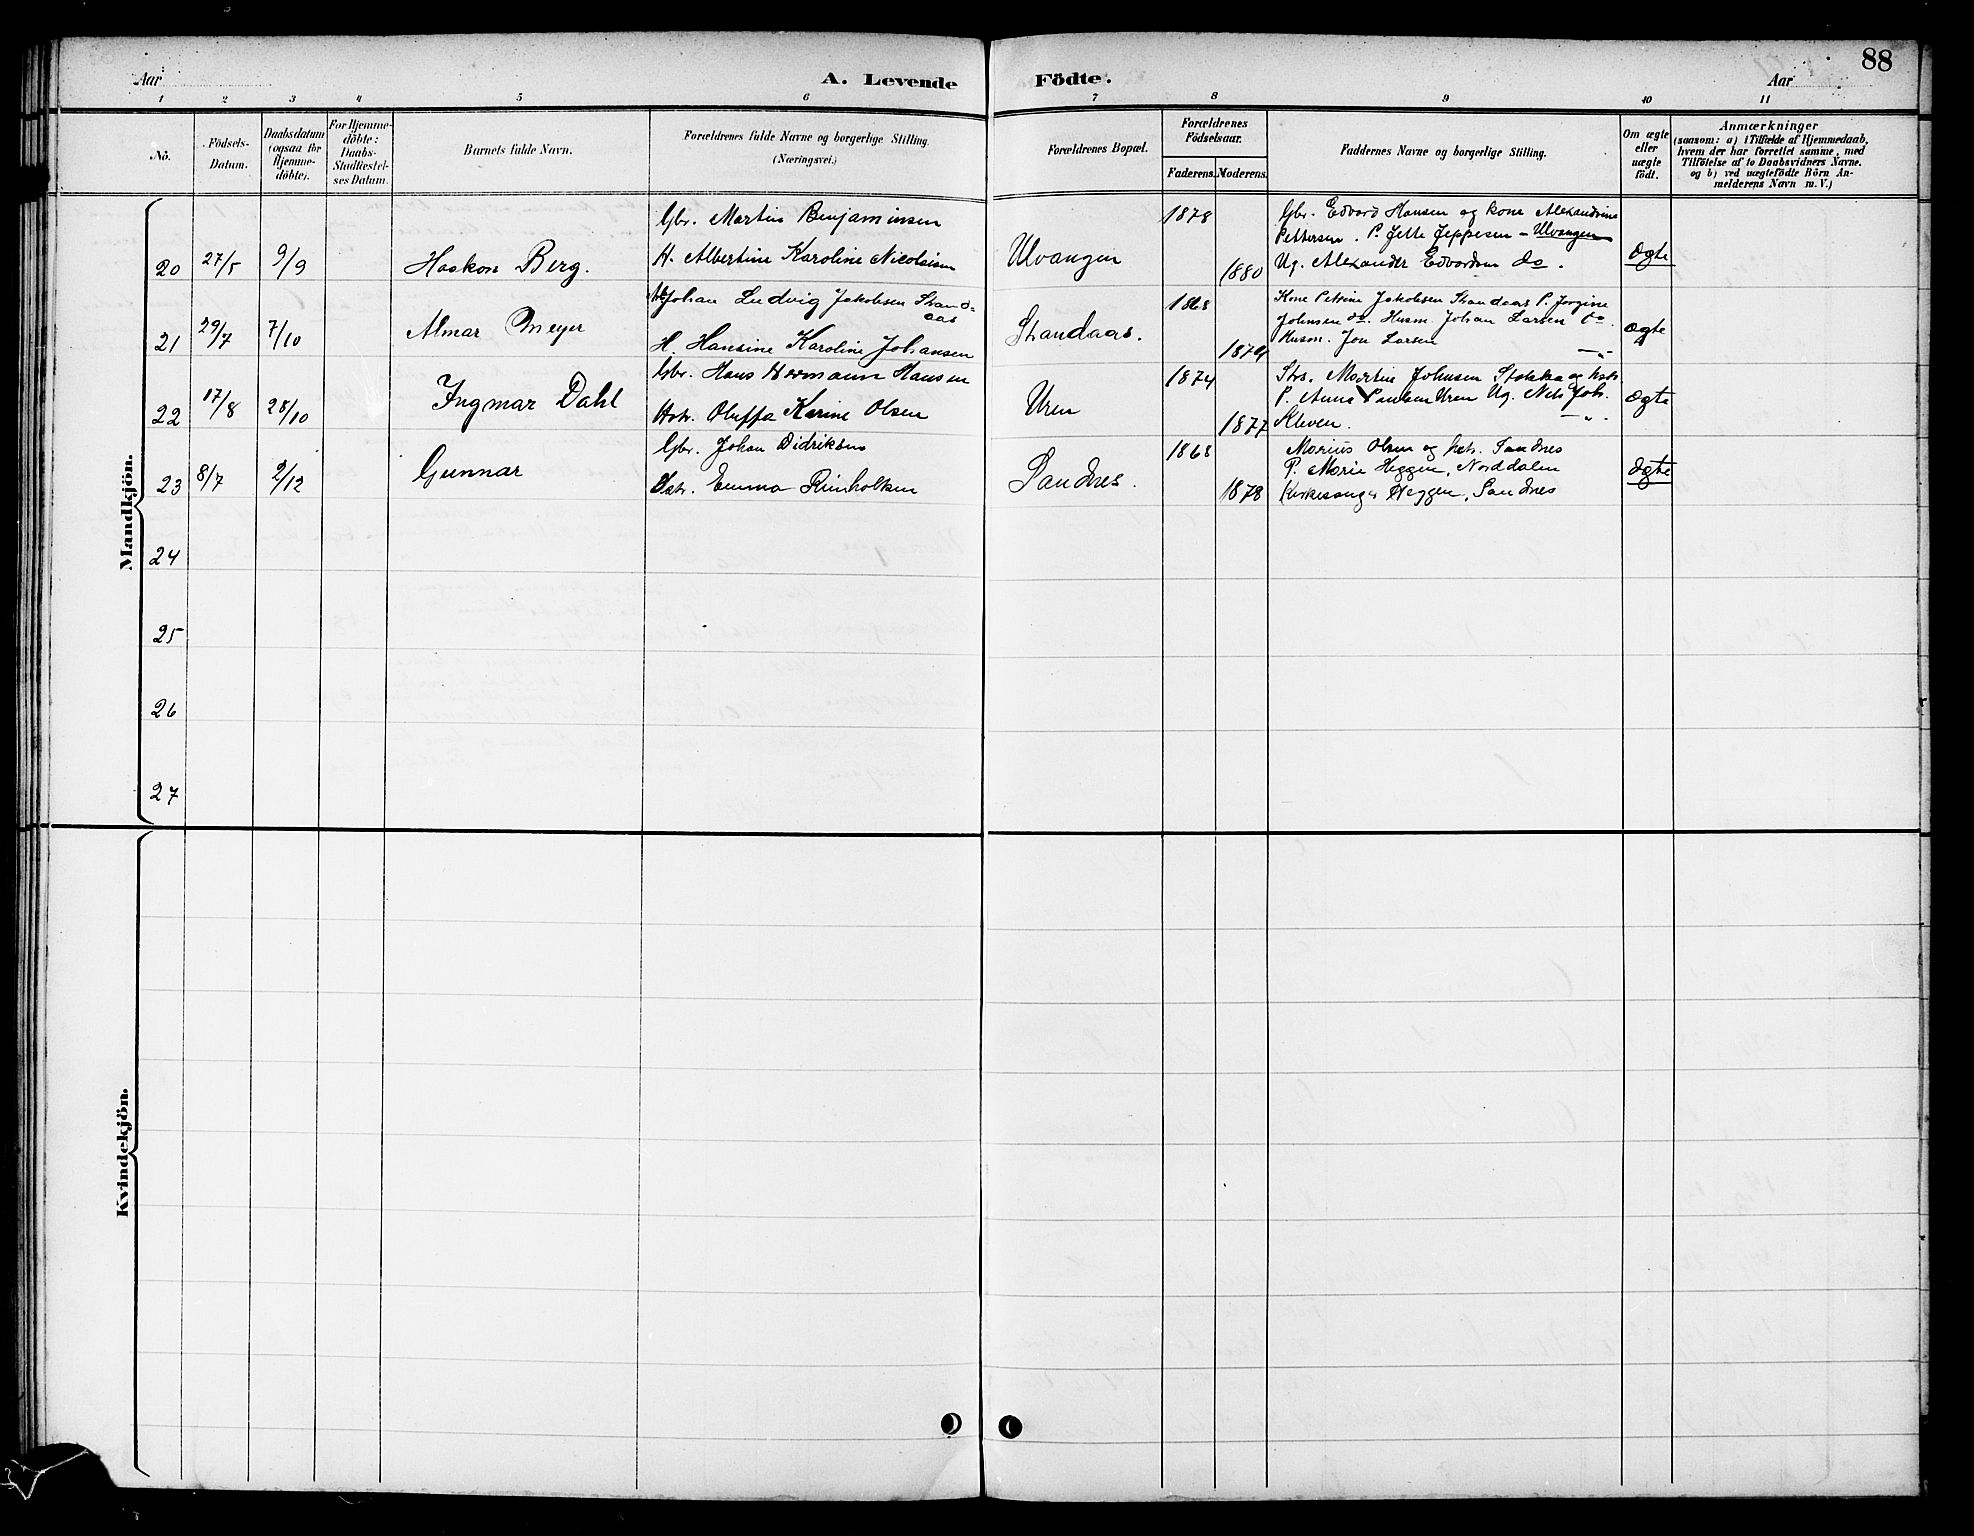 88
Aar
A. Levende
Födte.
Aar
1 2 3 4 5 6 7 8 9 10 11
Nö.
Födsels-
Datum.
Daabsdatum
(ogsaa for
Hjemme-
döbte).
For Hjemme-
döbte:
Daabs-
Stadfæstel-
ses Datum.
Barnets fulde Navn.
Forældrenes fulde Navne og borgerlige Stilling.
(Næringsvei.)
Forældrenes Bopæl.
Forældrenes
Födselsaar.
Faderens. Moderens.
Faddernes Navne og borgerlige Stilling.
Om ægte
eller
uægte
födt.
Anmærkninger
(saasom: a) i Tilfælde af Hjemmedaab,
hvem der har forrettet samme, med
Tilföielse af to Daabsvidners Navne.
og b) ved uægtefödte Börn An-
melderens Navn m. V.)
Mandkjön.
20 27/5 9/9 Haakon Berg.
Gbr. Martin Benjaminsen
H. Albertine Karoline Nicolaisen
Ulvangen
1878
1880
Gbr. Edvard Hansen og kone Alexandrine
Pettersen. P. Jette Jeppesen - Ulvangen
Ug. Alexander Edvardsen do.
Ægte
21 29/7 7/10 Almar Meyer
Johan Ludvig Jakobsen Strand-
aas
H. Hansine Karoline Johansen
Strandaas.
1868
1874
Kone Petrine Jakobsen Strandaas P. Jorgine
Johnsen do. Husm. Johan Larsen do.
Husm. Jon Larsen - " -
Ægte
22 17/8 28/10 Ingmar Dahl
Gbr. Hans Hermann Hansen
Hstr. Oluffa Karine Olsen
Uren
1874
1877
Strs. Martin Johnsen Stokka og hstr.
P. Anna Paulsen Uren Ug. Nils Joh.
Kleven. - " -
Ægte
23 8/7 2/12 Gunnar
Gbr. Johan Didriksen
Hstr. Emma Reinholtsen
Sandnes.
1868
1878
Marius Olsen og hstr. Sandnes
P. Marie Heggen, Norddalen
Kirkesanger Heggen, Sandnes
Ægte
24
25
26
27
Kvindekjön.